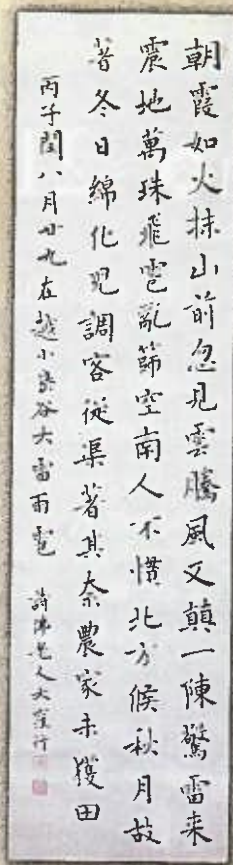 朝霞如火抹山前忽見雲騰風又顛一陳驚雷来
震地萬珠飛雹亂篩空南人不慣北方候秋月故
著冬日綿化児調客従渠著其奈農家未獲田
丙子閏八月廿九在越小出谷大雷雨雹 詩佛老人大窪行